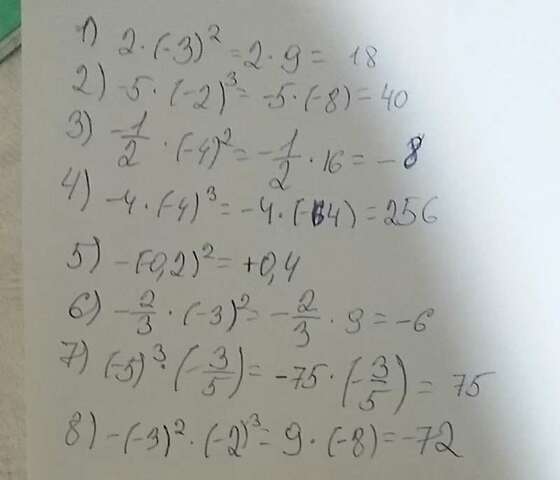 1) 2·(-3)² = 2·9 = 18
2) -5·(-2)³ = -5·(-8) = 40
3) -1/2·(-4)² = -1/2·16 = -8
4) -4·(-4)³ = -4·(-64) = 256
5) -(-0,2)² = +0,4
6) -2/3·(-3)² = -2/3·9 = -6
7) (-5)³·(-3/5) = -75·(-3/5) = 75
8) -(-3)²·(-2)³ = 9·(-8) = -72